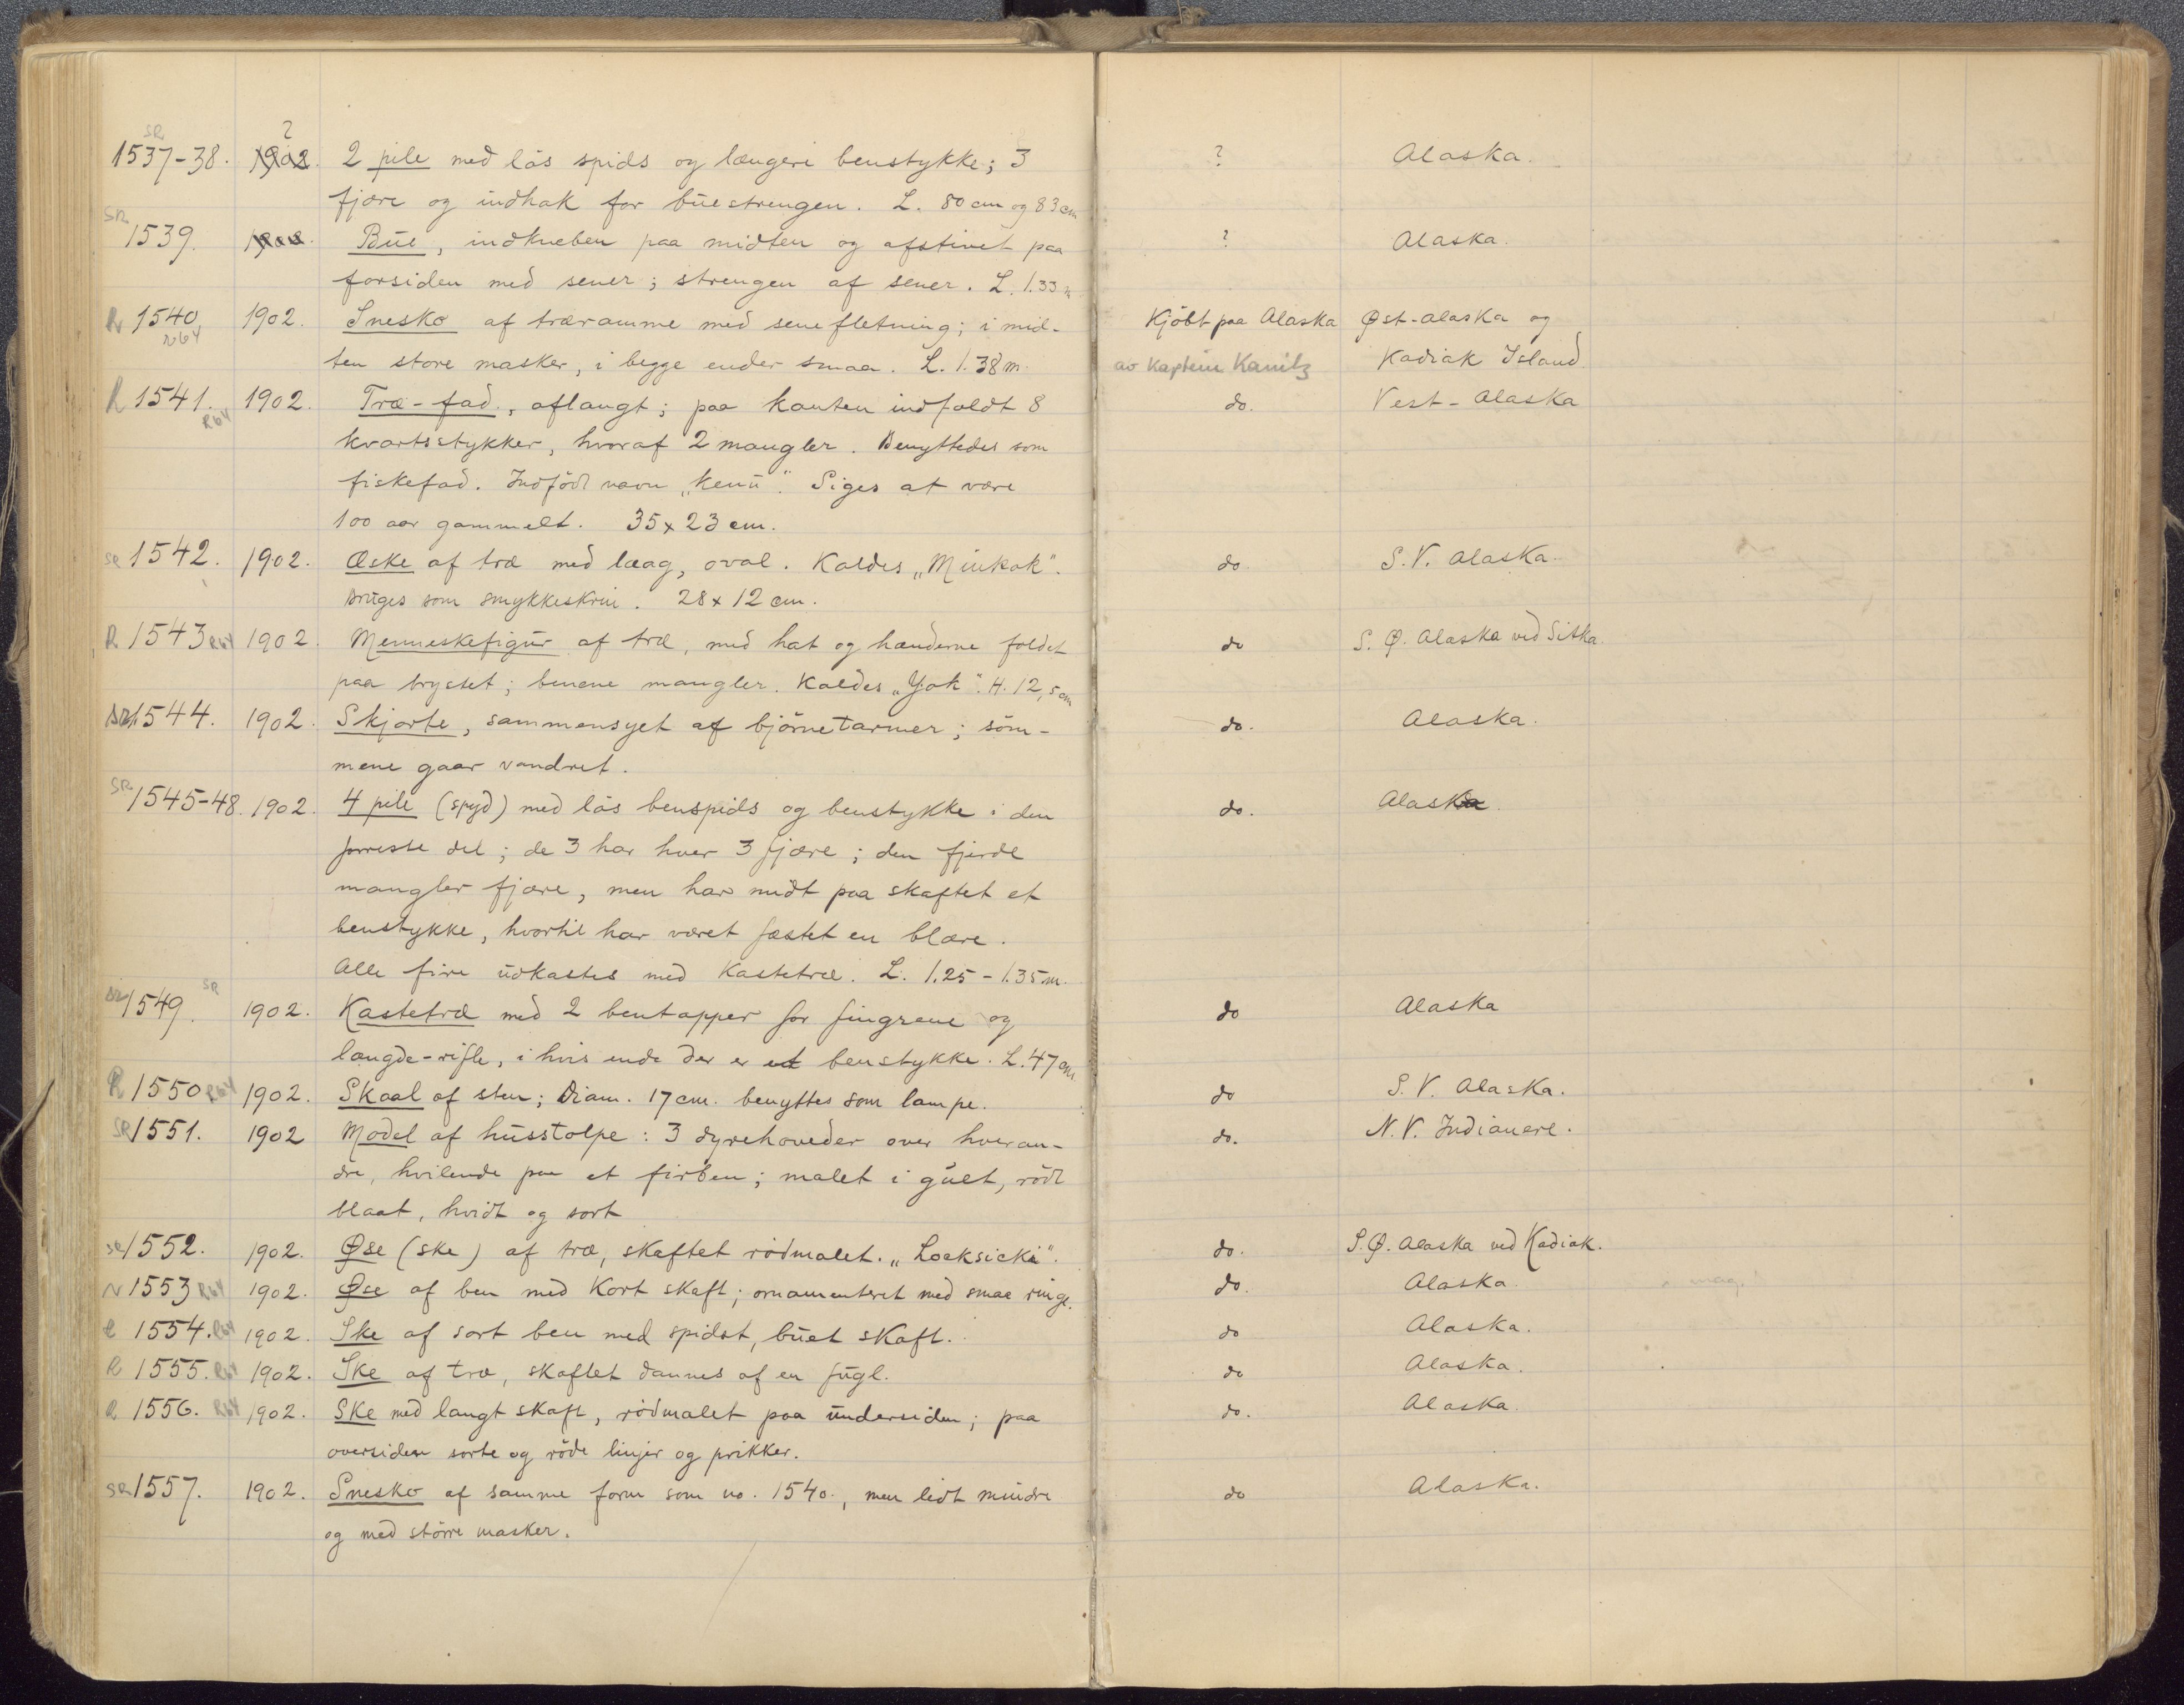 SR ?
1537-38. 1902. 2 pile med lös spids og længere benstykke; 3 ? Alaska.
fjære og indhak for buestrengen. L. 80 cm og 83 cm
SR 1539. 1902. Bue, indkneben paa midten og afstivet paa ? Alaska.
forsiden med sener; strengen af sener. L. 1.33 m
R 1540 1902. Snesko af træramme med senefletning; i mid- Kjöbt paa Alaska Øst-Alaska og
R64 ten store masker, i begge ender smaa. L. 1.38 m. av Kaptein Kanitz Kadiak Island.
R 1541. R64 1902. Træ-fad, aflangt; paa kanten indfældt 8 do. Vest-Alaska
kvartsstykker, hvoraf 2 mangler. Benyttedes som
fiskefad. Indfödt navn „Kenü". Siges at være
100 aar gammelt. 35 x 23 cm.
SR 1542. 1902. Æske af træ med laag, oval. Kaldes „Minkak". do S.V. Alaska.
Bruges som smykkeskrin. 28 x 12 cm.
R 1543 R64 1902. Menneskefigur af træ, med hat og hænderne foldet do S. Ø. Alaska ved Sitka.
paa brystet; benene mangler. Kaldes „Yak". H. 12,5 cm
SR 1544. 1902. Skjorte, sammensyet af björnetarmer; söm- do. Alaska.
mene gaar vandret.
SR 1545-48. 1902. 4 pile (spyd) med lös benspids og benstykke i den do. Alaska.
forreste del; de 3 har hver 3 fjære; den fjerde
mangler fjære, men har midt paa skaftet et
benstykke, hvortil har været fæstet en blære.
Alle fire udkastes med Kastetræ. L. 1.25 - 1.35 m.
SR 1549. SR 1902. Kastetræ med 2 bentapper for fingrene og do Alaska
længde-rifle, i hvis ende der er et benstykke. L. 47 cm
R 1550 R64 1902. Skaal af sten; Diam. 17 cm. benyttes som lampe. do S. V. Alaska.
SR 1551. 1902 Model af husstolpe: 3 dyrehoveder over hveran- do. N.V. Indianere.
dre, hvilende paa et firben; malet i gult, rödt
blaat, hvidt og sort
SR 1552. 1902. Øse (ske) af træ, skaftet rödmalet. „Loeksicki". do. S.Ø. Alaska ved Kadiak.
R 1553 R64 1902. Øse af ben med Kort skaft; ornamenteret med smaa ringe. do. Alaska. mag.
R 1554. R64 1902. Ske af sort ben med spidst, buet skaft. do Alaska.
R 1555. R64 1902. Ske af træ, skaftet dannes af en fugl. do Alaska.
R 1556. R64 1902. Ske med langt skaft, rödmalet paa undersiden; paa do. Alaska.
oversiden sorte og röde linjer og prikker.
SR 1557. 1902. Snesko af samme form som no. 1540., men lidt mindre do Alaska.
og med större masker.